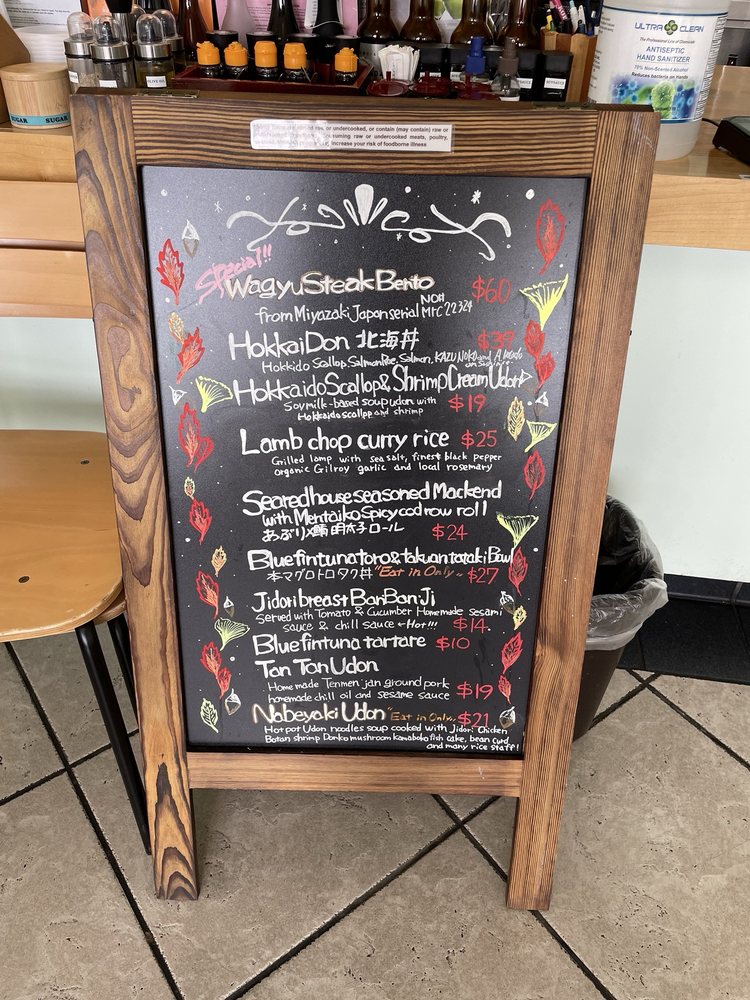 ULTRA CLEAN
The Professional Line of Sanitizer
ANTISEPTIC
HAND SANITIZER
70% Non-Scented Alcohol
Reduces bacteria on Hands
SUGAR SUGAR
raw or undercooked, or contain (may contain) raw or
consuming raw or undercooked meats, poultry,
increase your risk of foodborne illness
Special!!
Wagyu Steak Bento $60
from Miyazaki Japan serial NO# MFC 22324
HokkaiDon 北海丼 $39
Hokkido Scallop, Salmon Roe, Salmon, KAZUNOKO and
Hokkaido Scallop & Shrimp Cream Udon
Soymilk-based soup udon with
Hokkaido scallpp and shrimp $19
Lamb chop curry rice $25
Grilled lamp with sea salt, finest black pepper
organic Gilroy garlic and local rosemary
Seared house seasoned Mackend
with Mentaiko Spicy cod row roll
あぶり〆鯖明太子ロール $24
Bluefin tuna toro & takuan tataki Bowl
本マグロトロタク丼 "Eat in Only" $27
Jidori breast BanBanJi
Served with Tomato & Cucumber Homemade sesami
sauce & chill sauce ←Hot!!! $14
Bluefin tuna tartare $10
Tan Tan Udon
Home made Tenmen jan ground pork
homemade chill oil and sesame sauce $19
Nabeyaki Udon "Eat in Only" $21
Hot pot Udon noodles soup cooked with Jidori Chicken
Botan shrimp Donko mushroom kamaboko fish cake, bean curd
and many rice staff!